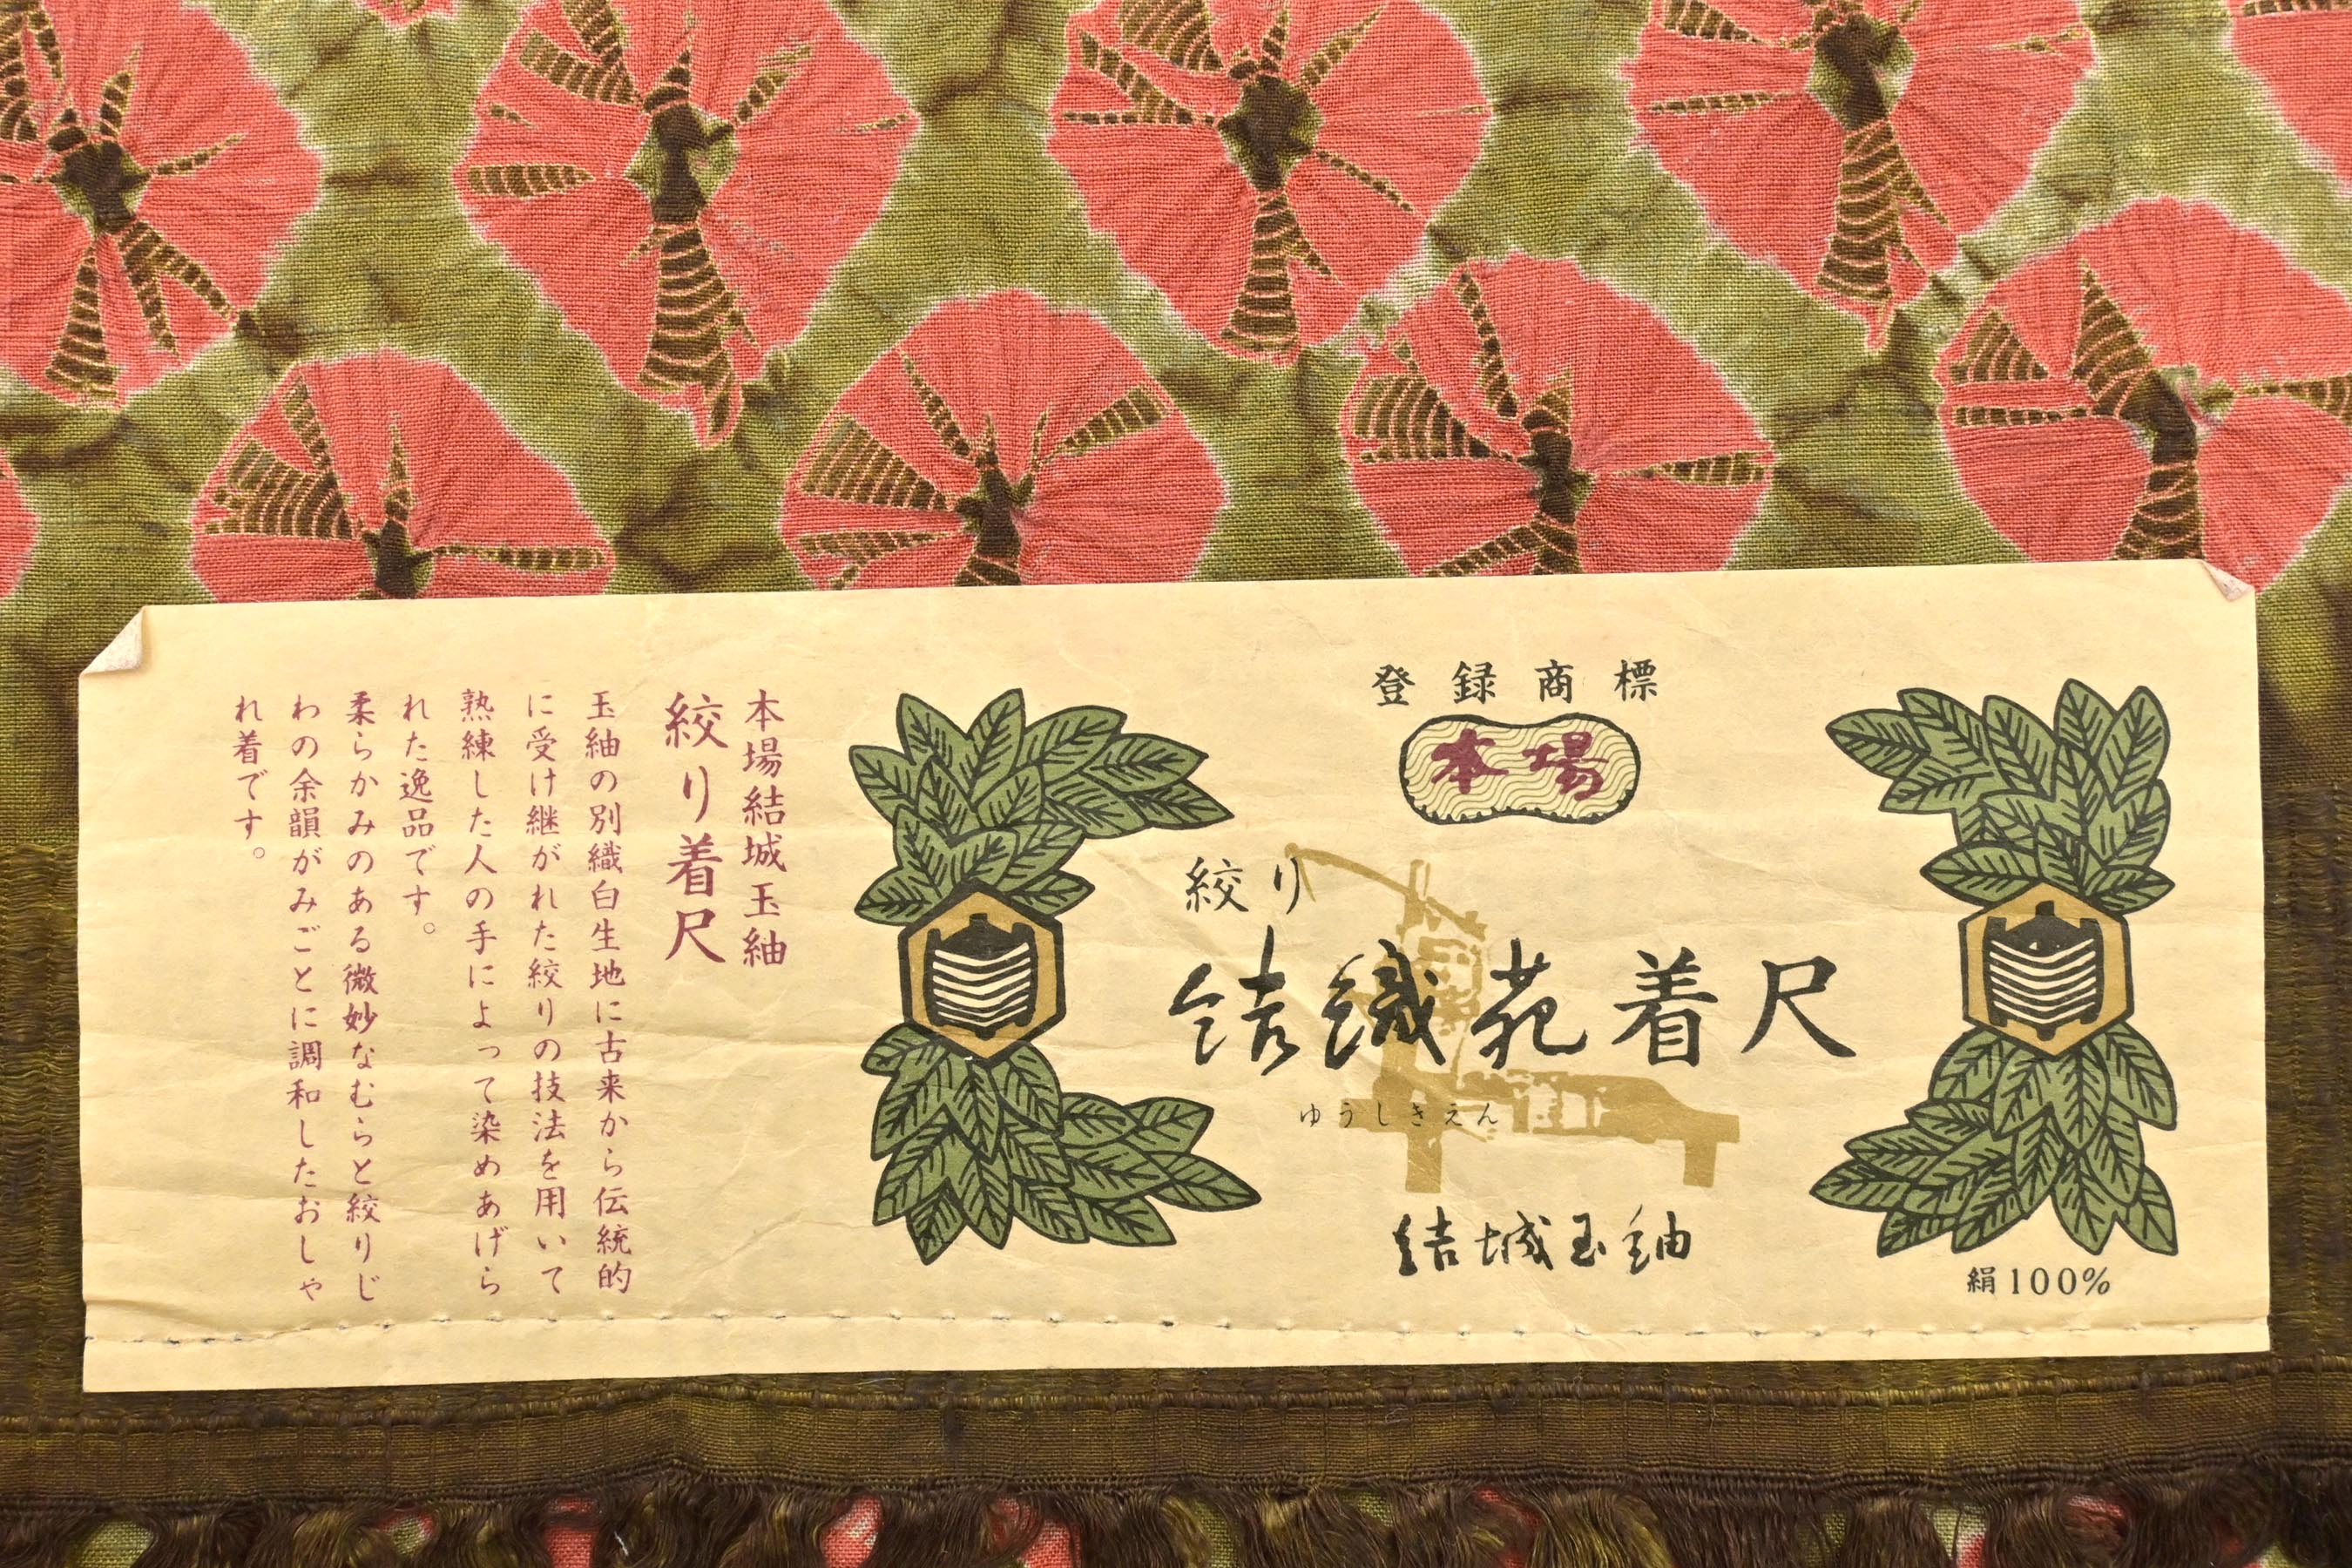 登録商標
本場
絞り
結織苑着尺
ゆうしきえん
結城玉紬
絹100%
本場結城玉紬
絞り着尺
玉紬の別織白生地に古来から伝統的
に受け継がれた絞りの技法を用いて
熟練した人の手によって染めあげら
れた逸品です。
柔らかみのある微妙なむらと絞りじ
わの余韻がみごとに調和したおしゃ
れ着です。